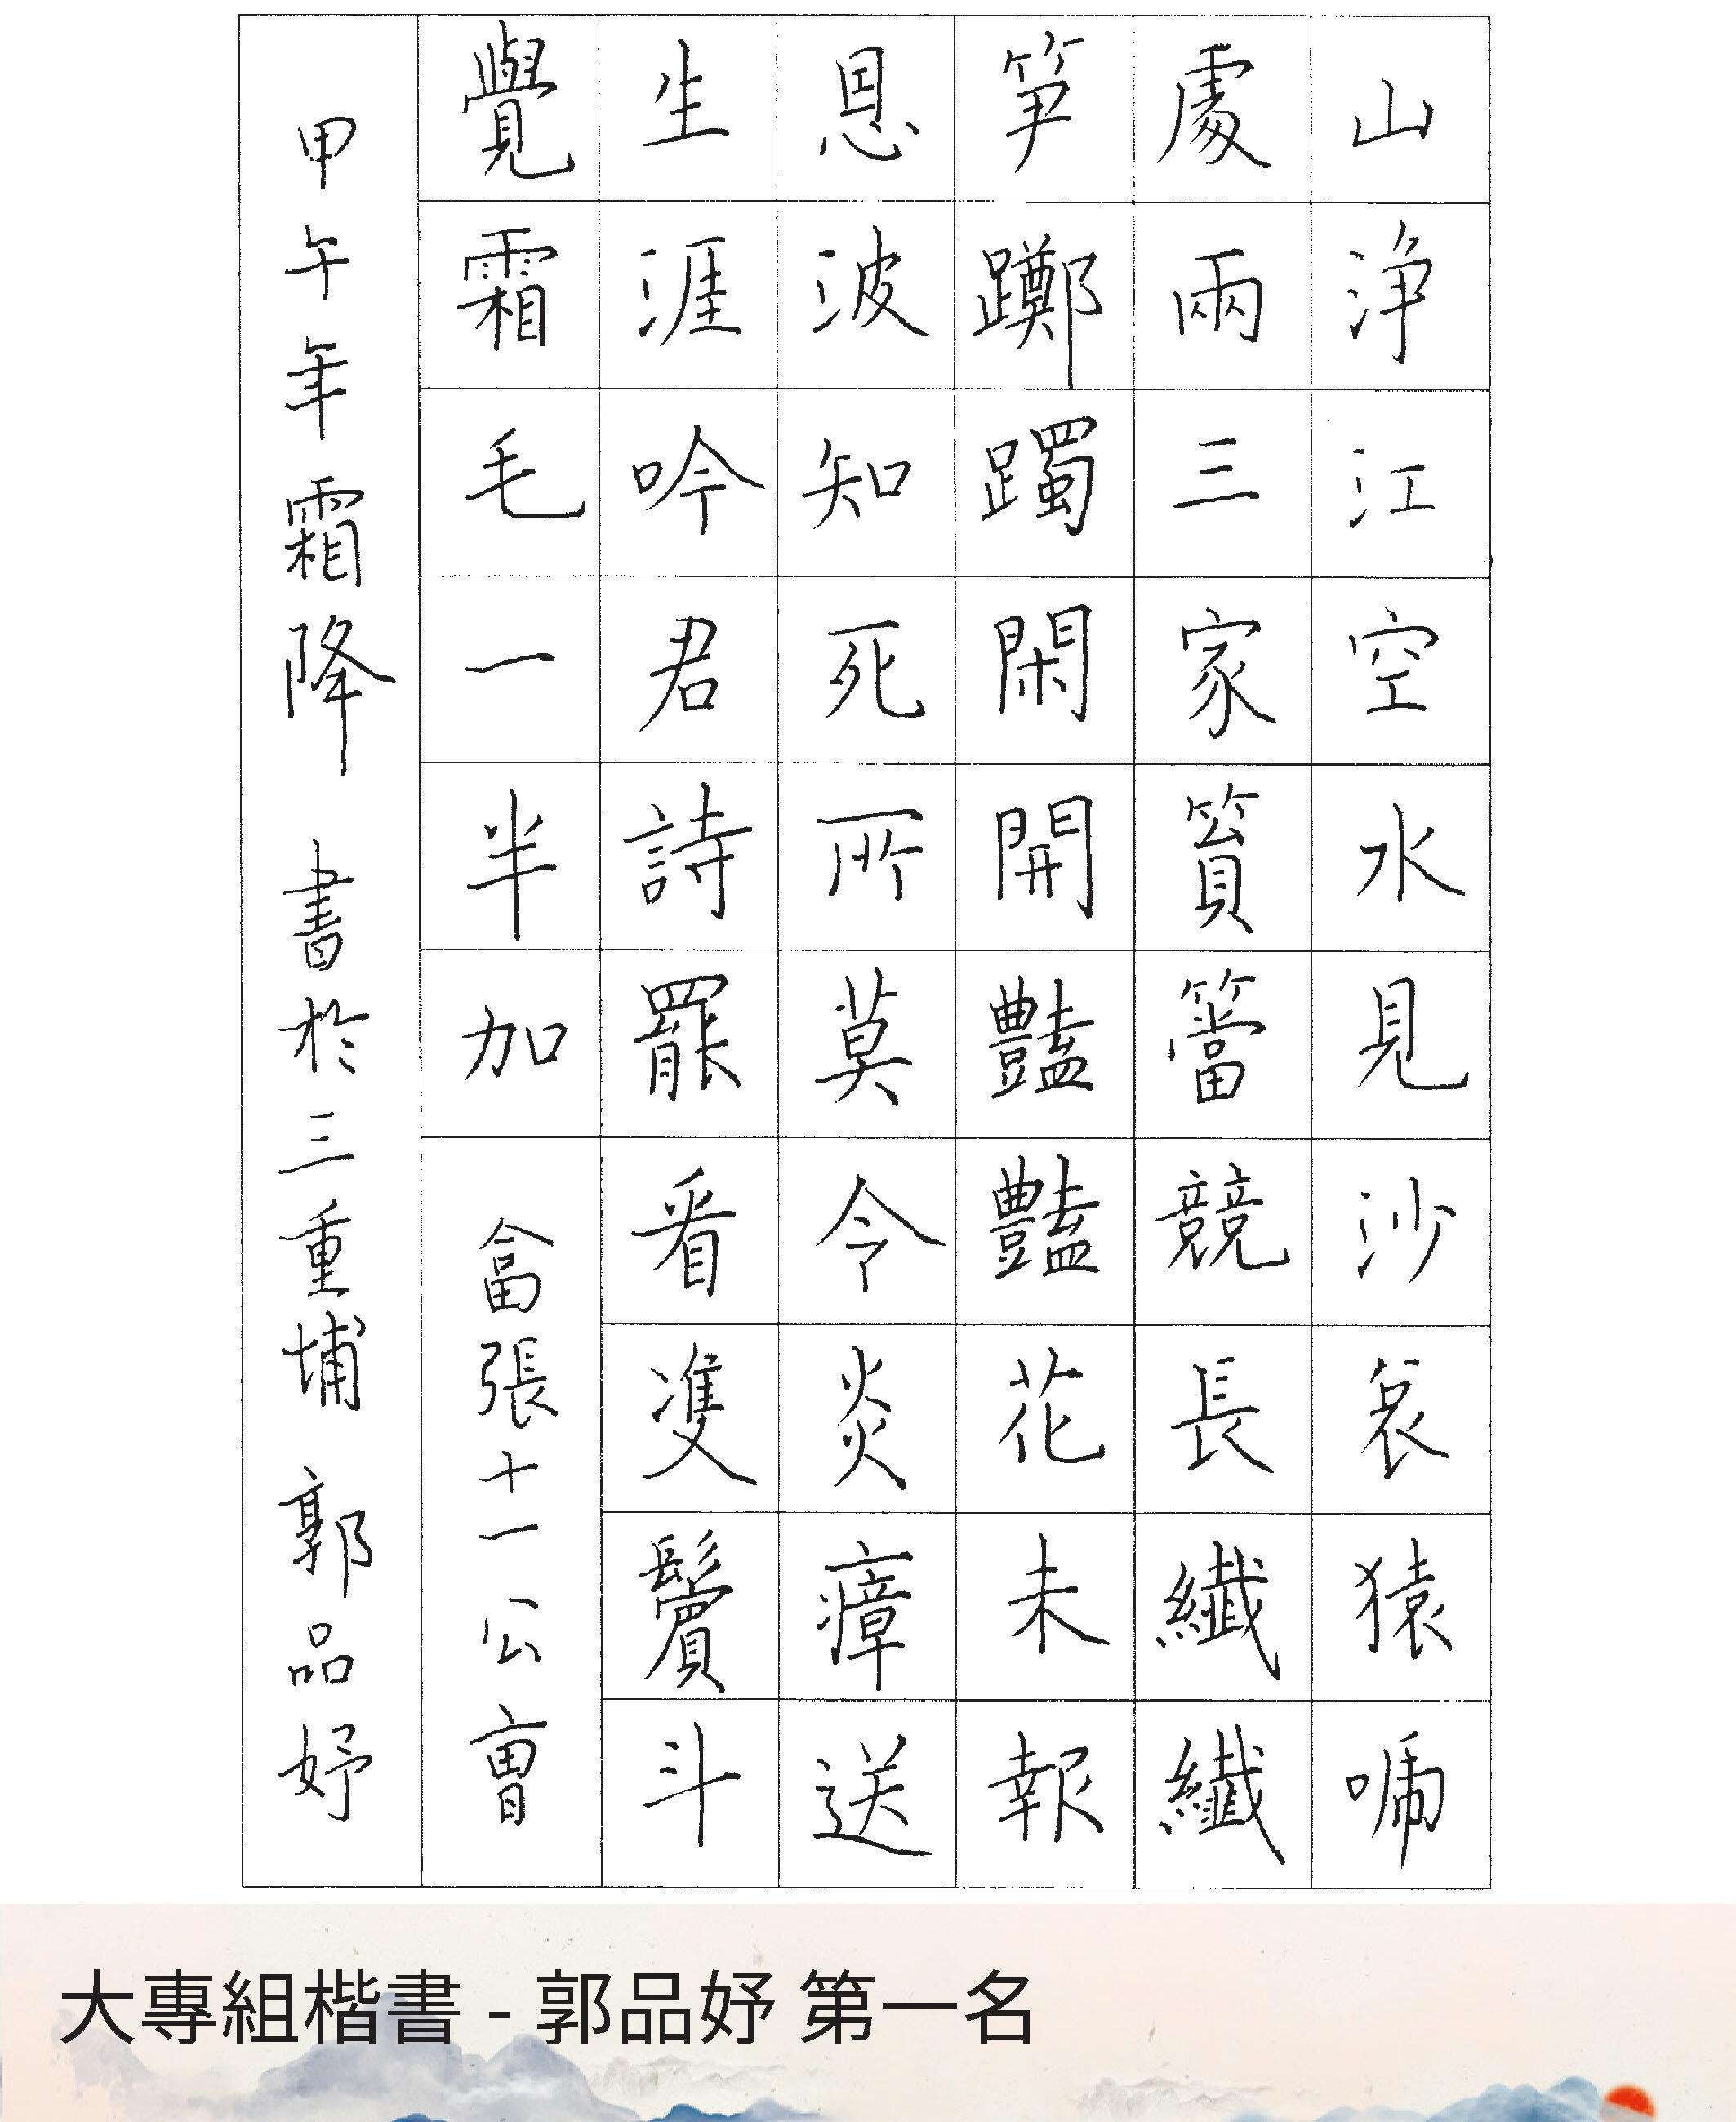 山浄江空水見沙哀猿啼
處兩三家篔簹競長纖纖
笋躑躅閑開豔豔花未報
恩波知死所莫令炎瘴送
生涯吟君詩罷看雙鬢斗
覺霜毛一半加
畣張十一公曹
甲午年霜降 書於三重埔 郭品妤
大專組楷書 - 郭品妤 第一名